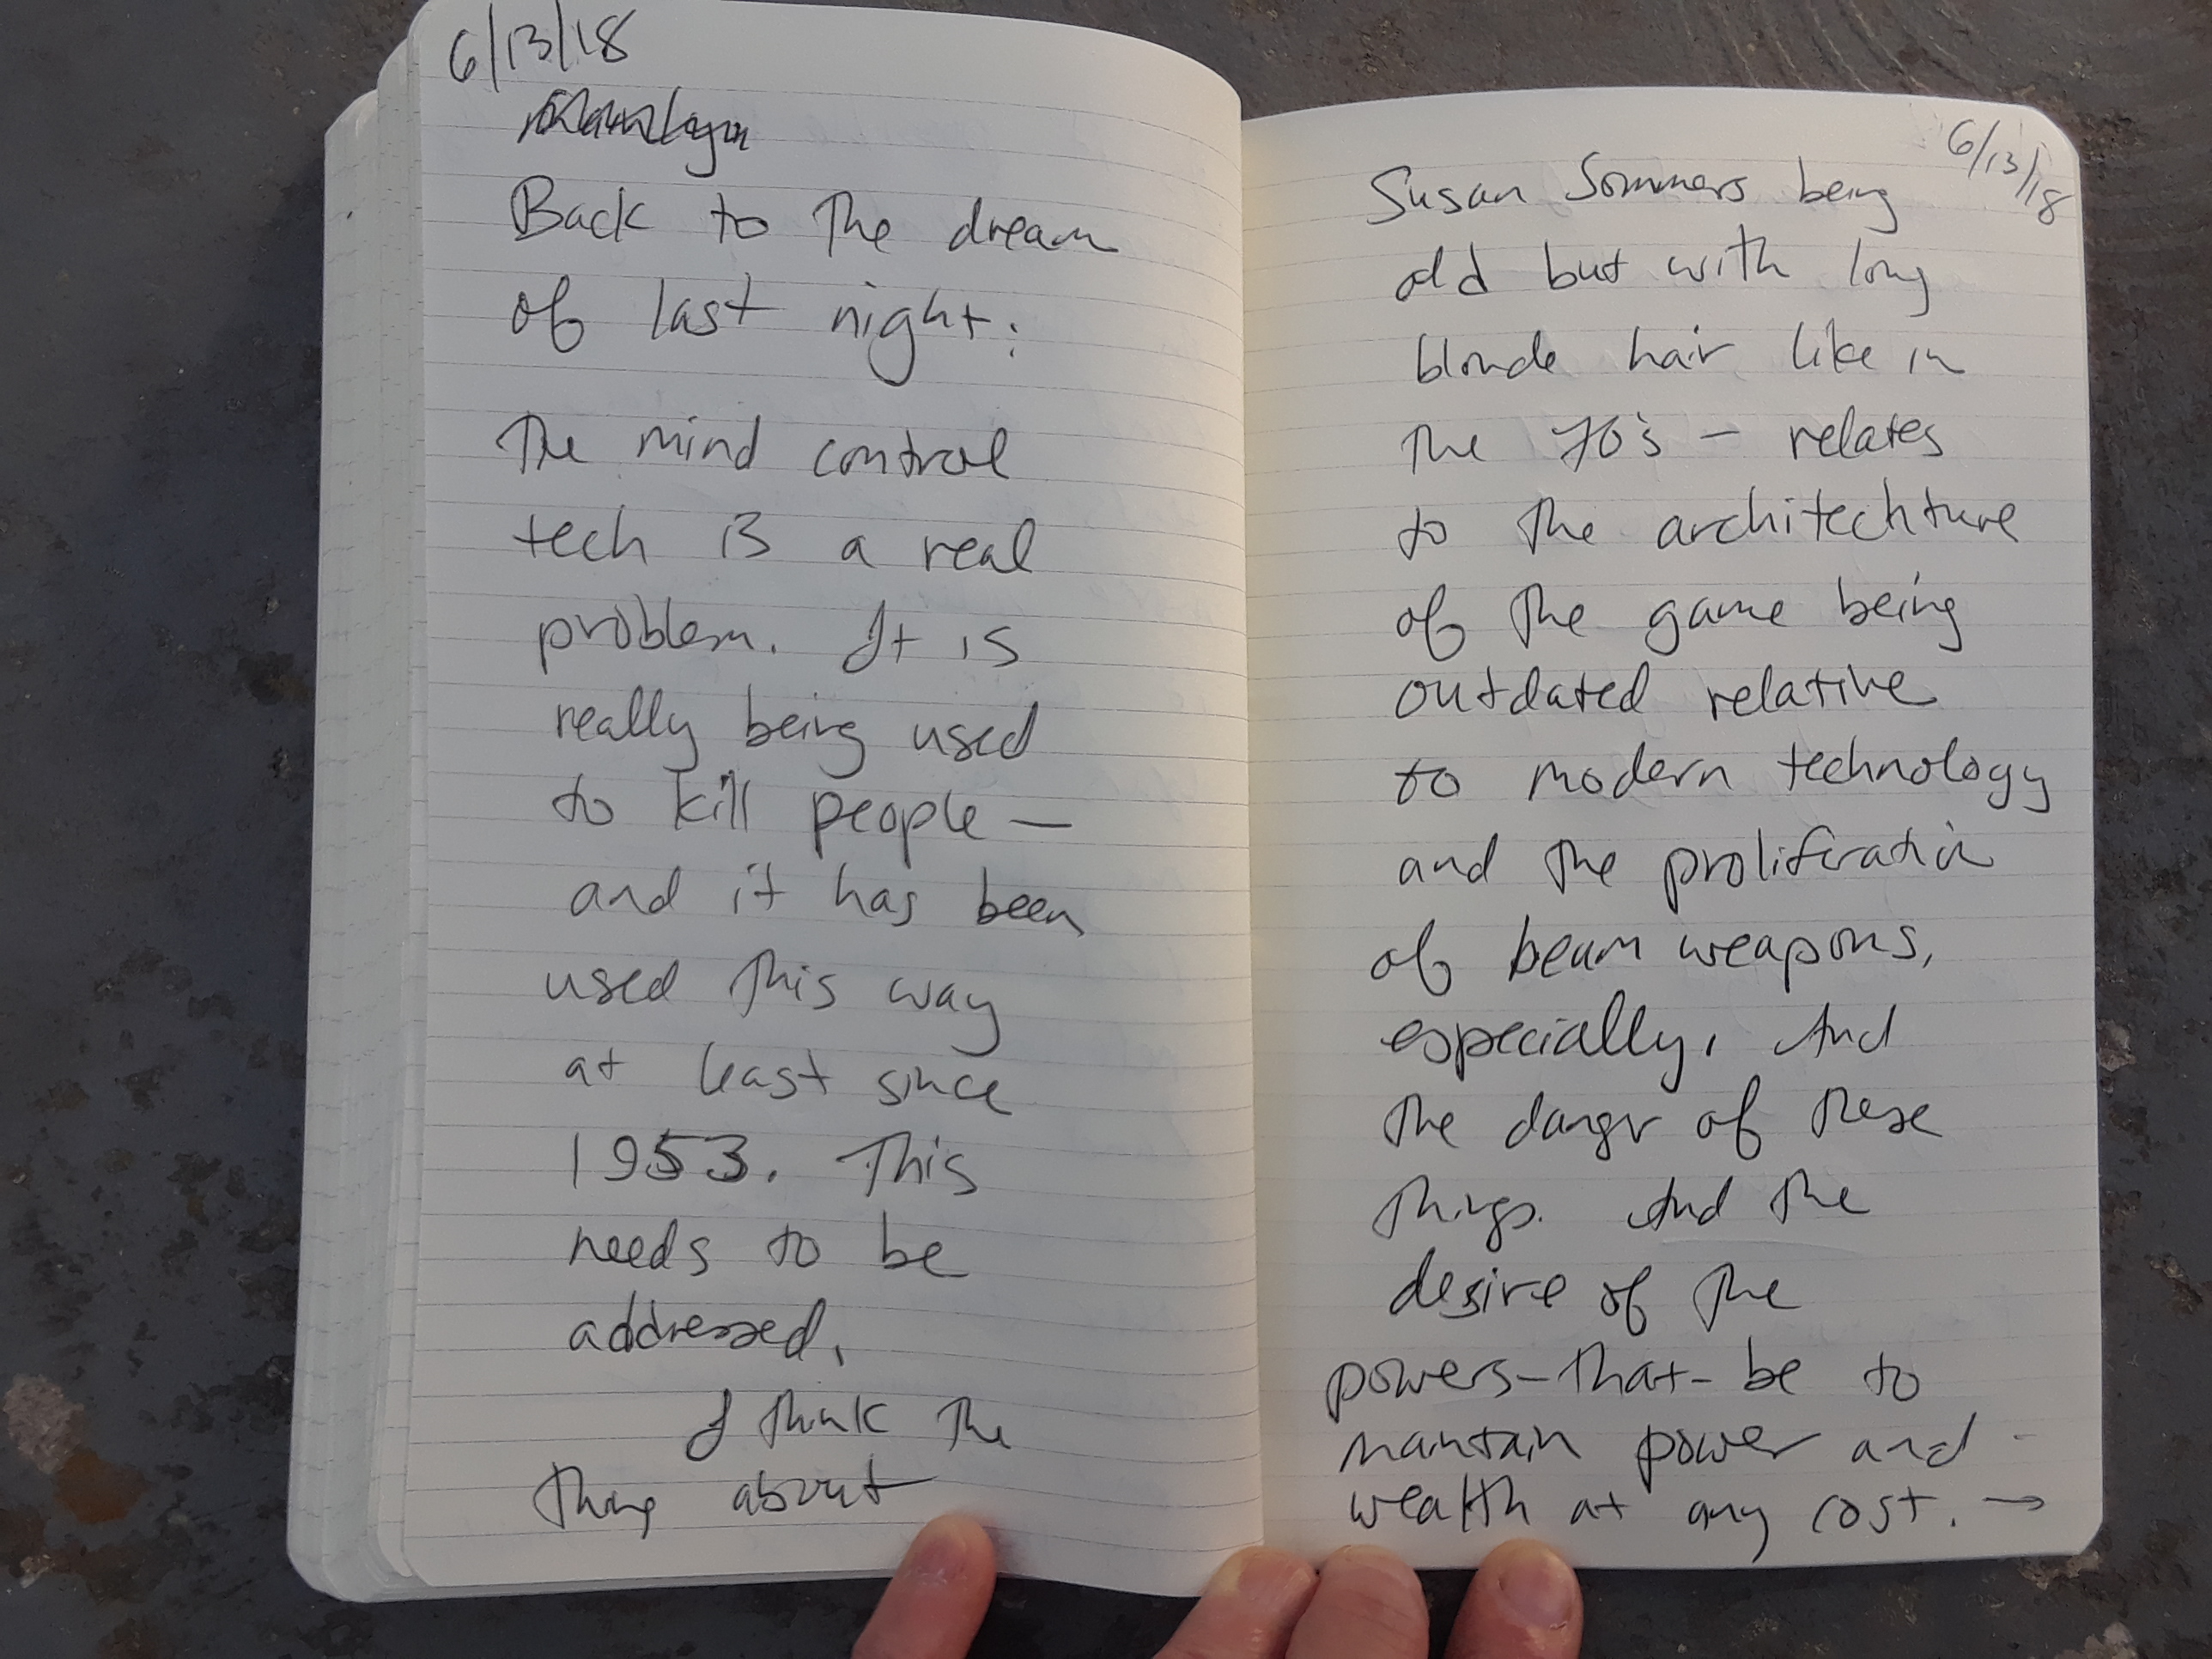 6/13/18
Back to the dream
of last night:
The mind control
tech is a real
problem. It is
really being used
to kill people —
and it has been
used this way
at least since
1953. This
needs to be
addressed.
I think the
thing about
6/13/18
Susan Sommers being
old but with long
blonde hair like in
the 70's — relates
to the architechture
of the game being
outdated relative
to modern technology
and the proliferation
of beam weapons,
especially. And
the danger of these
things. And the
desire of the
powers-that-be to
maintain power and
wealth at any cost. →